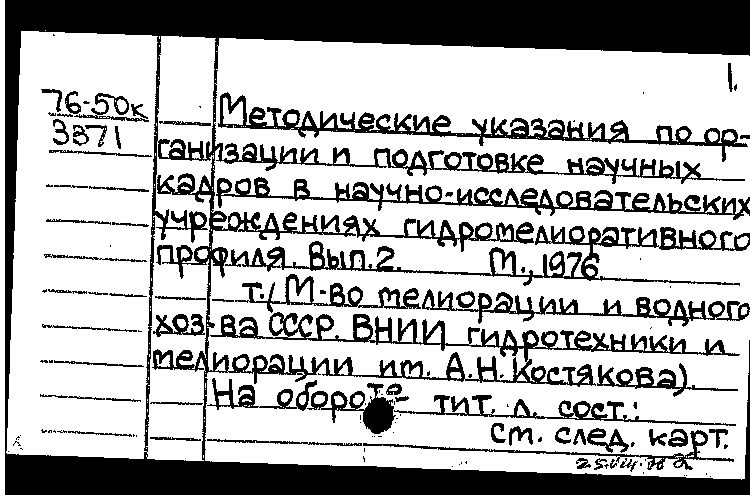 1.
76-50к
3371
Методические указания по ор-
ганизации и подготовке научных
кадров в научно-исследовательских
учреждениях гидромелиоративного
профиля. Вып.2. М., 1976.
т. (М-во мелиорации и водного
хоз-ва СССР. ВНИИ гидротехники и
мелиорации им. А.Н. Костякова).
На обороте тит. л. сост.:
см. след. карт.